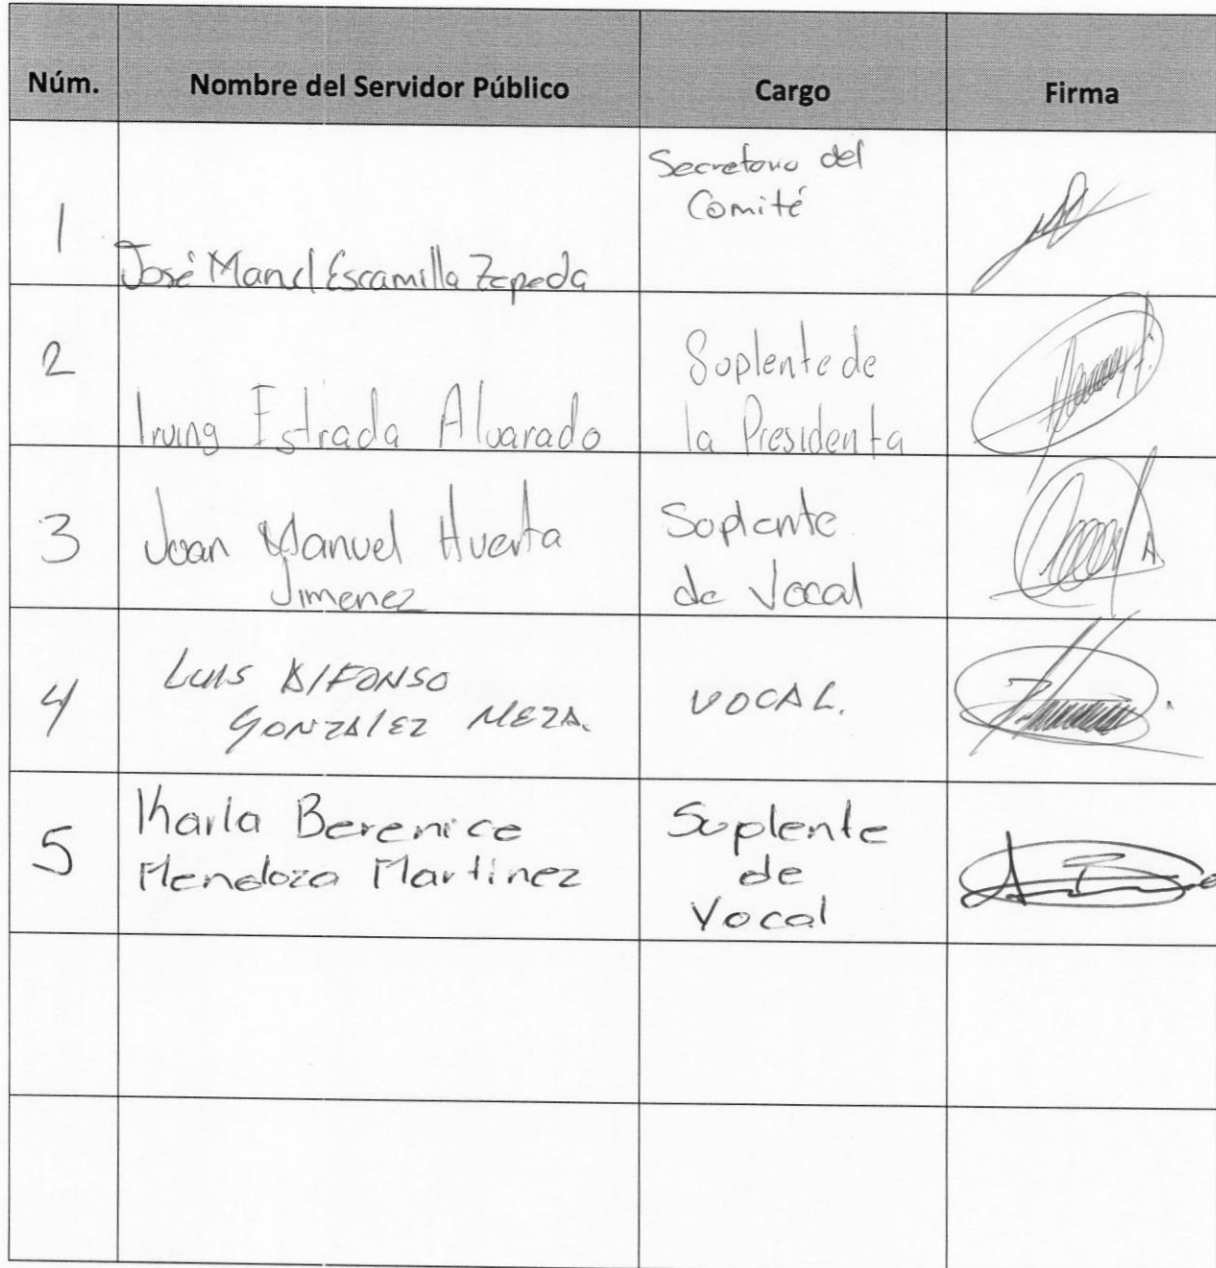 Núm. Nombre del Servidor Público Cargo Firma
1 José Manel Escamilla Zepeda Secretario del
Comité
2 Irving Estrada Alvarado Suplente de
la Presidenta
3 Juan Manuel Huerta
Jimenez
Suplente
de Vocal
4 Luis Alfonso
González Meza.
VOCAL.
5 Karla Berenice
Mendoza Martinez
Suplente
de
Vocal